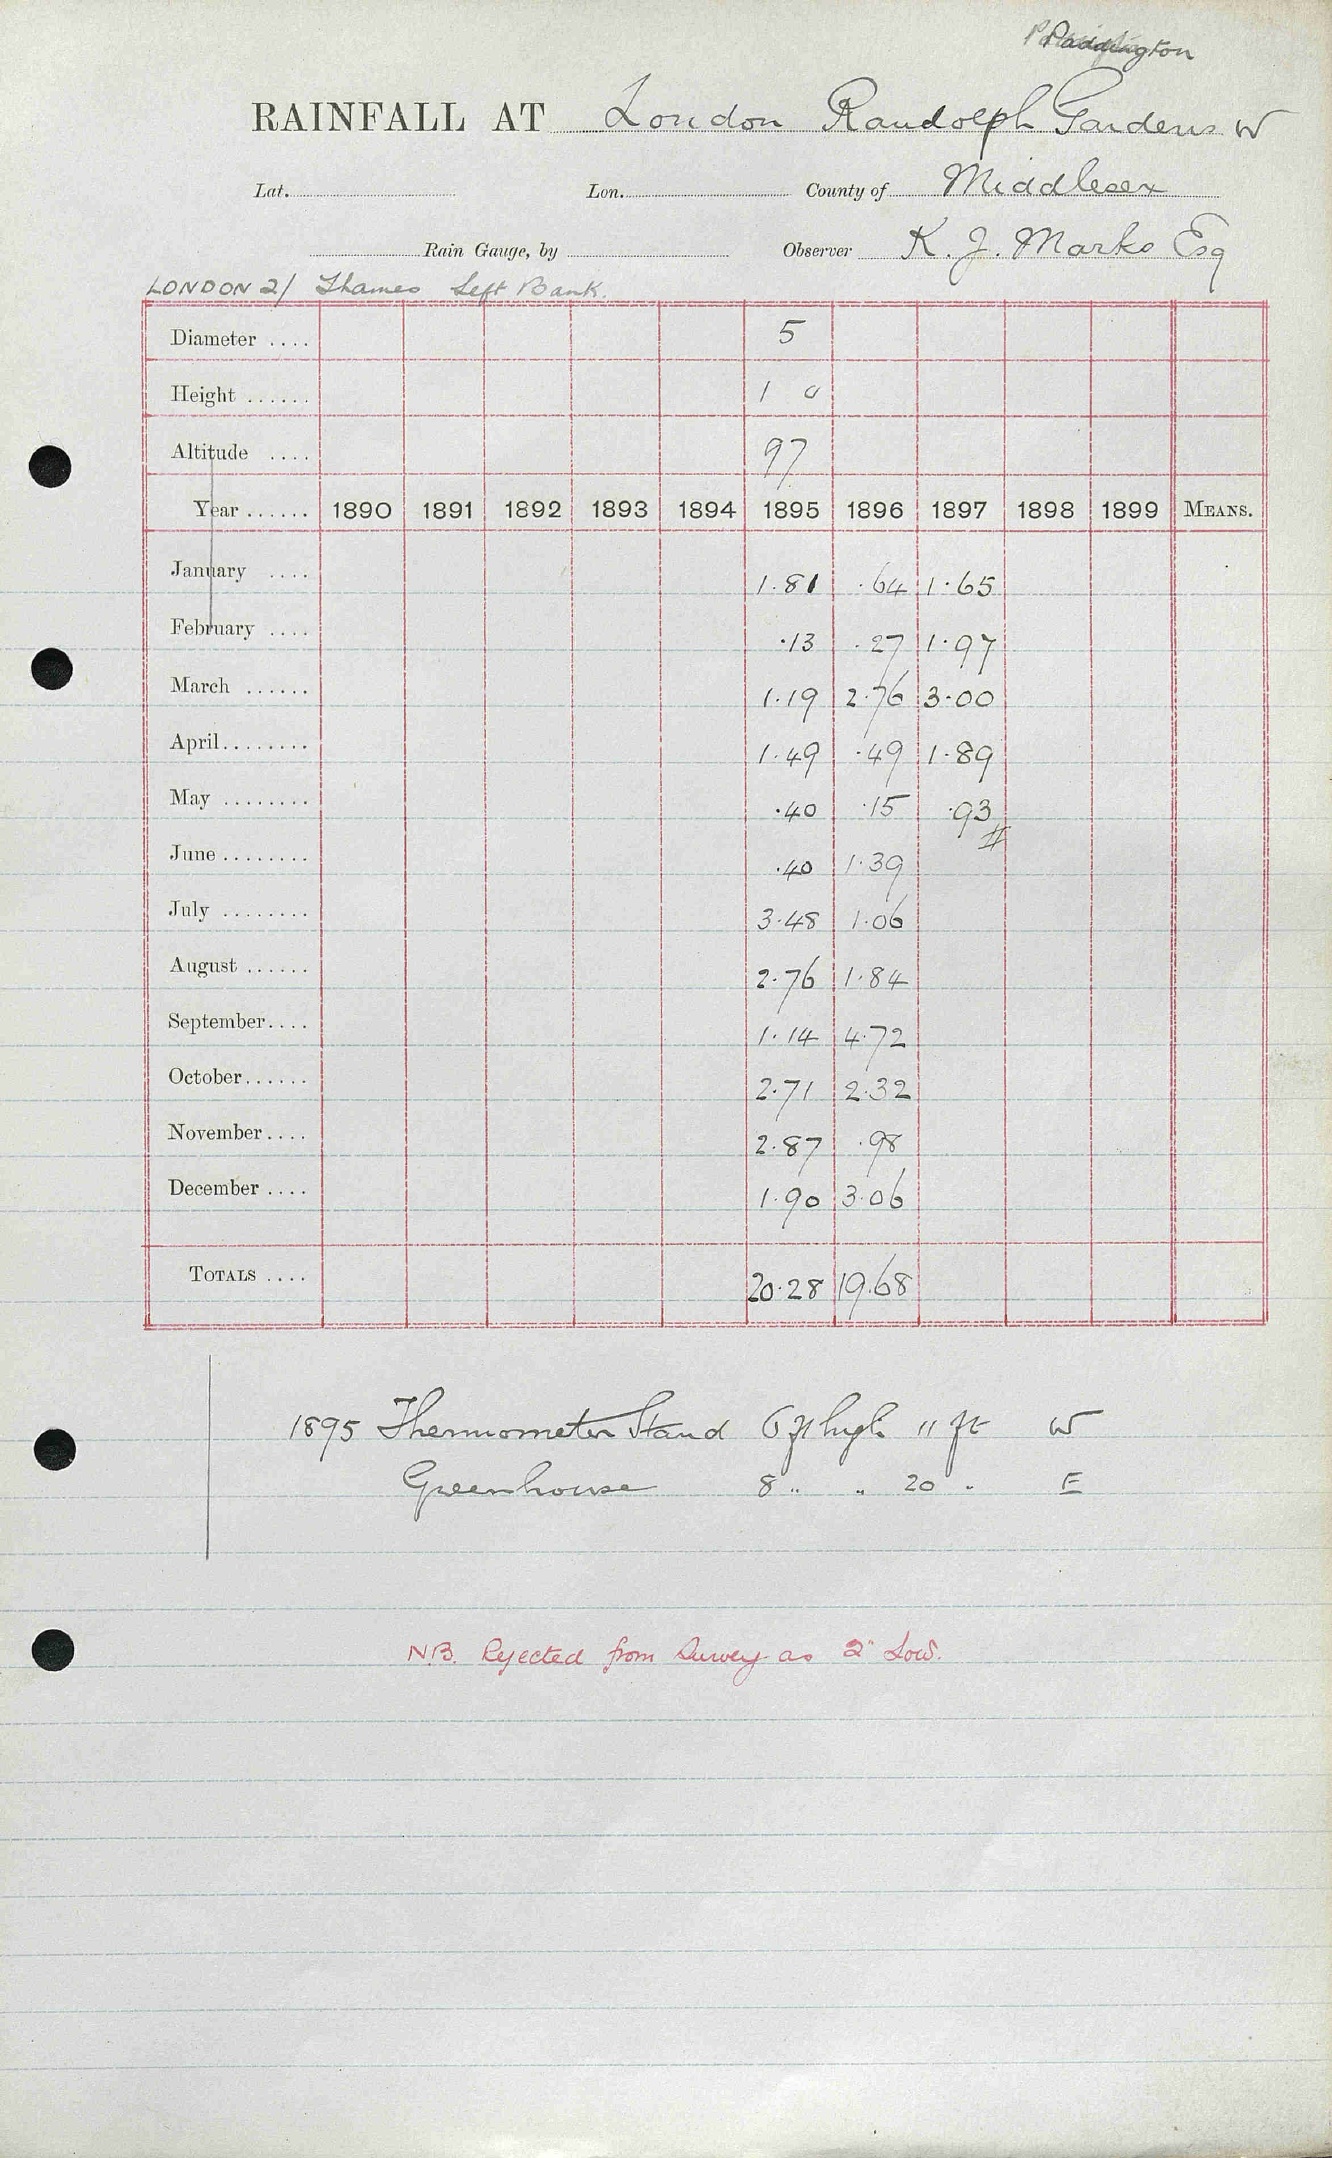 Paddington
RAINFALL AT London Randolph Gardens W
Lat. Lon. County of Middlesex
Rain Gauge, by Observer K. J. Marks Esq
LONDON 2/ Thames Left Bank.
Diameter .... 5
Height ...... 1 0
Altitude .... 97
Year ...... 1890 1891 1892 1893 1894 1895 1896 1897 1898 1899 MEANS.
January .... 1.81 .64 1.65
February .... .13 .27 1.97
March ...... 1.19 2.76 3.00
April........ 1.49 .49 1.89
May ........ .40 .15 .93
June ........ .40 1.39
July ........ 3.48 1.06
August ...... 2.76 1.84
September.... 1.14 4.72
October...... 2.71 2.32
November.... 2.87 .98
December .... 1.90 3.06
TOTALS .... 20.28 19.68
1895 Thermometer Stand 6 ft high 11 ft W
Greenhouse 8 " " 20 " E
N.B. Rejected from Survey as 2" Low.